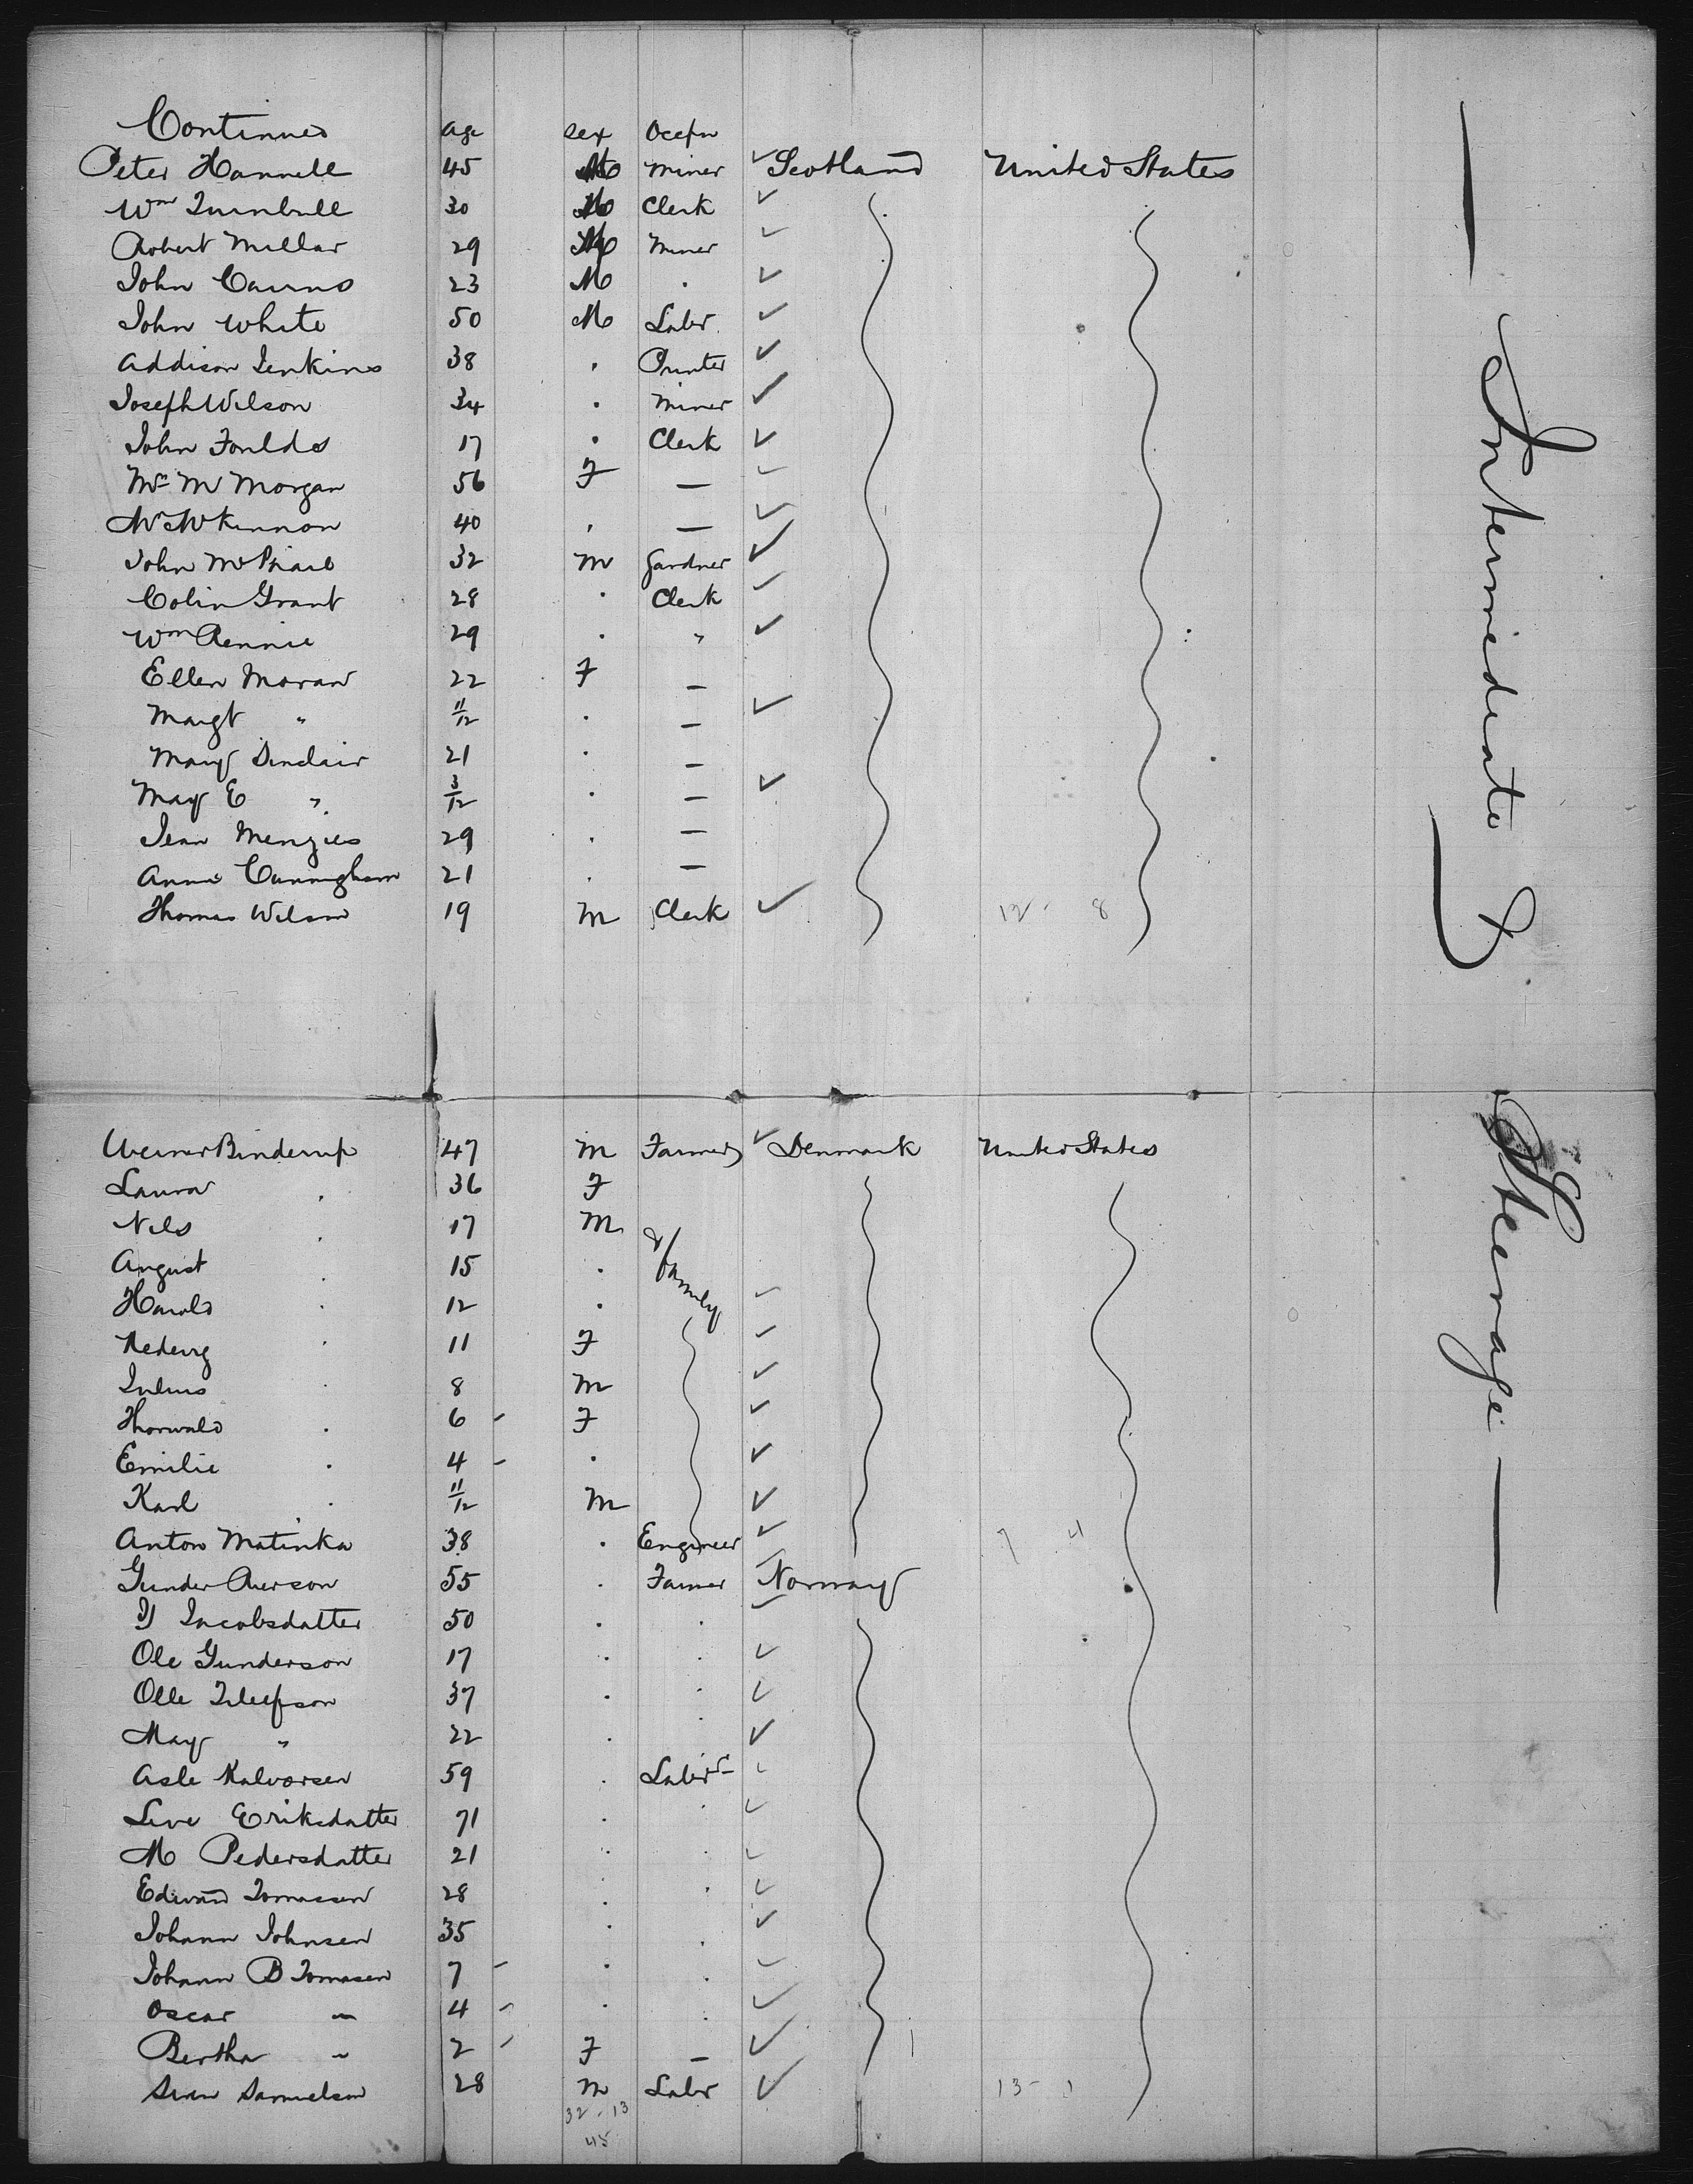 Continued Age Sex Occpn
Peter Hannell 45 M Miner ✓ Scotland United States
Wm Turnbull 30 M Clerk ✓
Robert Millar 29 M Miner ✓
John Cairns 23 M . ✓
John White 50 M Labr. ✓
Addison Jenkins 38 . Printer ✓
Joseph Wilson 34 . Miner ✓
John Foulds 17 . Clerk ✓
Mrs M Morgan 56 F — ✓
McKinnon 40 . — ✓
John 32 M Gardner ✓
Colin Grant 28 . Clerk ✓
Wm Rennie 29 . " ✓
Ellen Moran 22 F —
Margt " 11/12 . — ✓
Mary Sinclair 21 . —
Mary E " 3/12 . — ✓
Jean Menzies 29 . —
Annie Cunnigham 21 . —
Thomas Wilson 19 M Clerk ✓ 12 - 8
— Intermediate
Werner Binderup 47 M Farmer ✓ Denmark United States
Laura . 36 F
Nils . 17 M & family
August . 15 .
Harold . 12 . ✓
Hedevig . 11 F ✓
Julius . 8 M ✓
Thorwald . 6 - F ✓
Emilie . 4 - . ✓
Karl . 11/12 M ✓
Anton Matinka 38 . Engineer ✓ 7 4
Gunder 55 . Farmer Norway
Jacobsdatter 50 . . ✓
Ole Gunderson 17 . . ✓
Olle 37 . . ✓
May " 22 . . ✓
Asle Halvorsen 59 . Labr - ✓
Live Eriksdatter 71 . . ✓
M Pedersdatter 21 . . ✓
Edward Tomassen 28 . . ✓
Johann Johnsen 35 . . ✓
Johann B Tomasen 7 - . . ✓
Oscar " 4 - . . ✓
Bertha " 2 - F — ✓
Sven Samuelson 28 M Labr ✓ 13 - 1
32 - 13
45
Steerage —